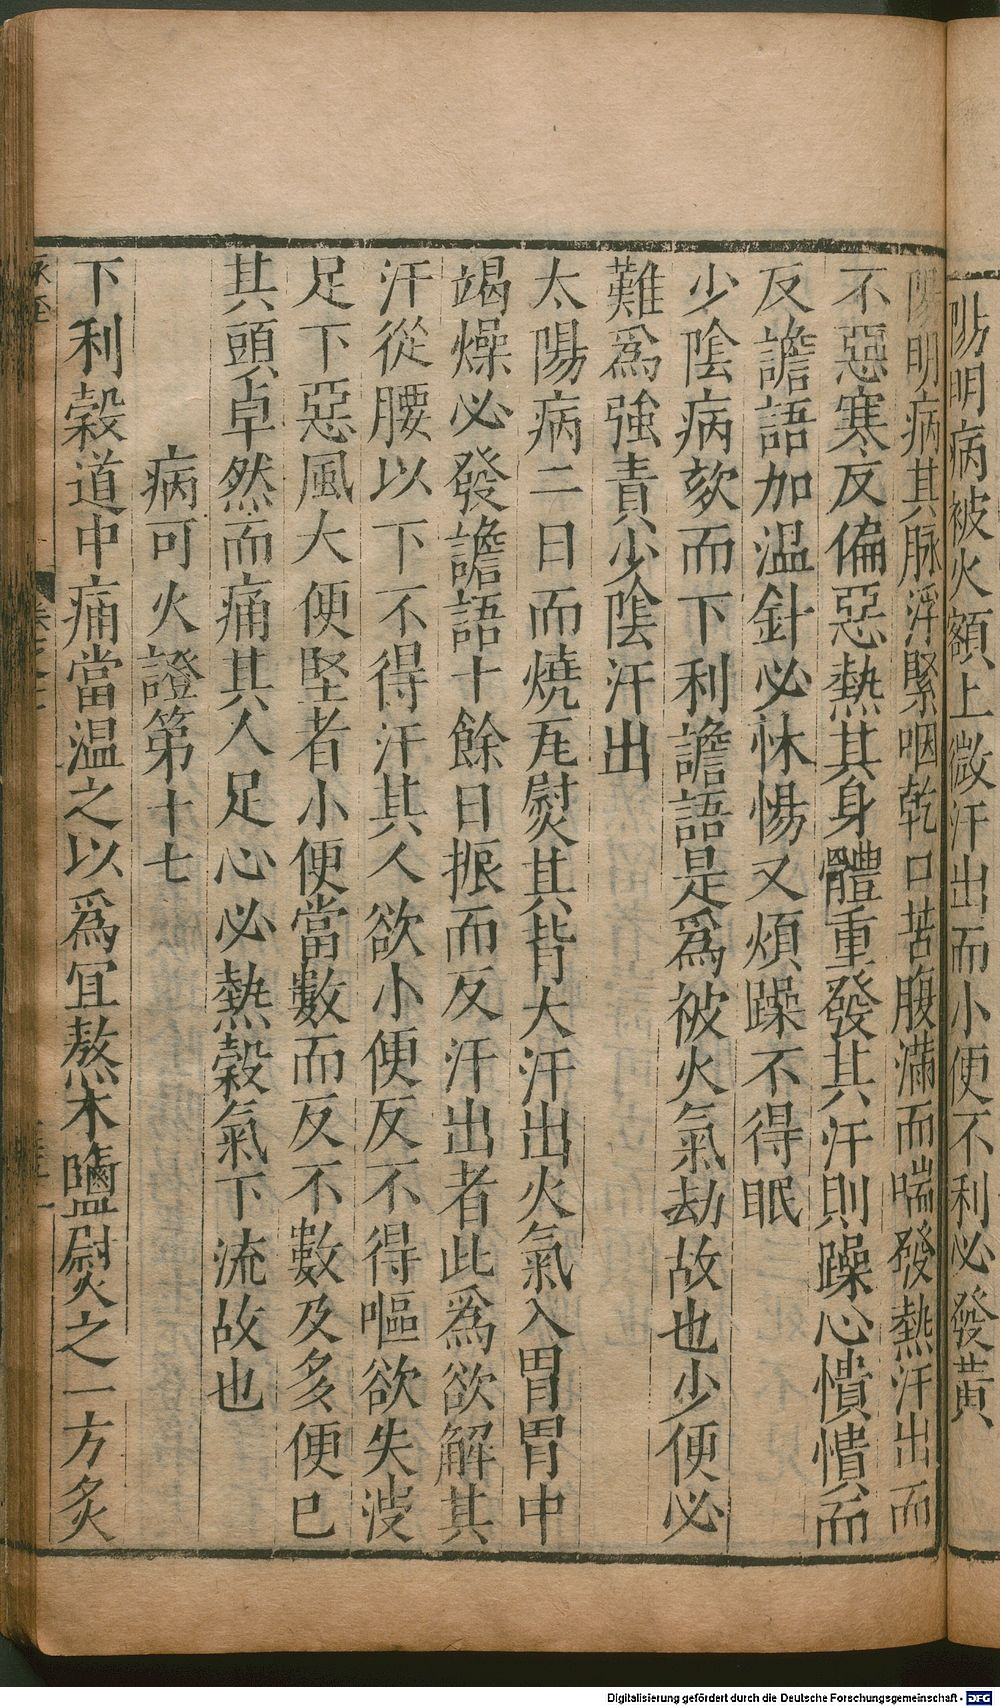 陽明病被火額上微汗出而小便不利必發黃
陽明病其脉浮緊咽乾口苦腹滿而喘發熱汗出而
不惡寒反偏惡熱其身體重發其汗則躁心憒憒而
反譫語加温針必怵惕又煩躁不得眠
少陰病欬而下利譫語是為被火氣劫故也少便必
難為強責少陰汗出
太陽病二日而燒瓦熨其背大汗出火氣入胃胃中
竭燥必發譫語十餘日振而反汗出者此為欲解其
汗從腰以下不得汗其人欲小便反不得嘔欲失溲
足下惡風大便堅者小便當數而反不數及多便已
其頭卓然而痛其人足心必熱穀氣下流故也
病可火證第十七
下利穀道中痛當温之以為宜熬木鹽熨之一方炙
脉經
卷七之
Digitalisierung gefördert durch die Deutsche Forschungsgemeinschaft - DFG